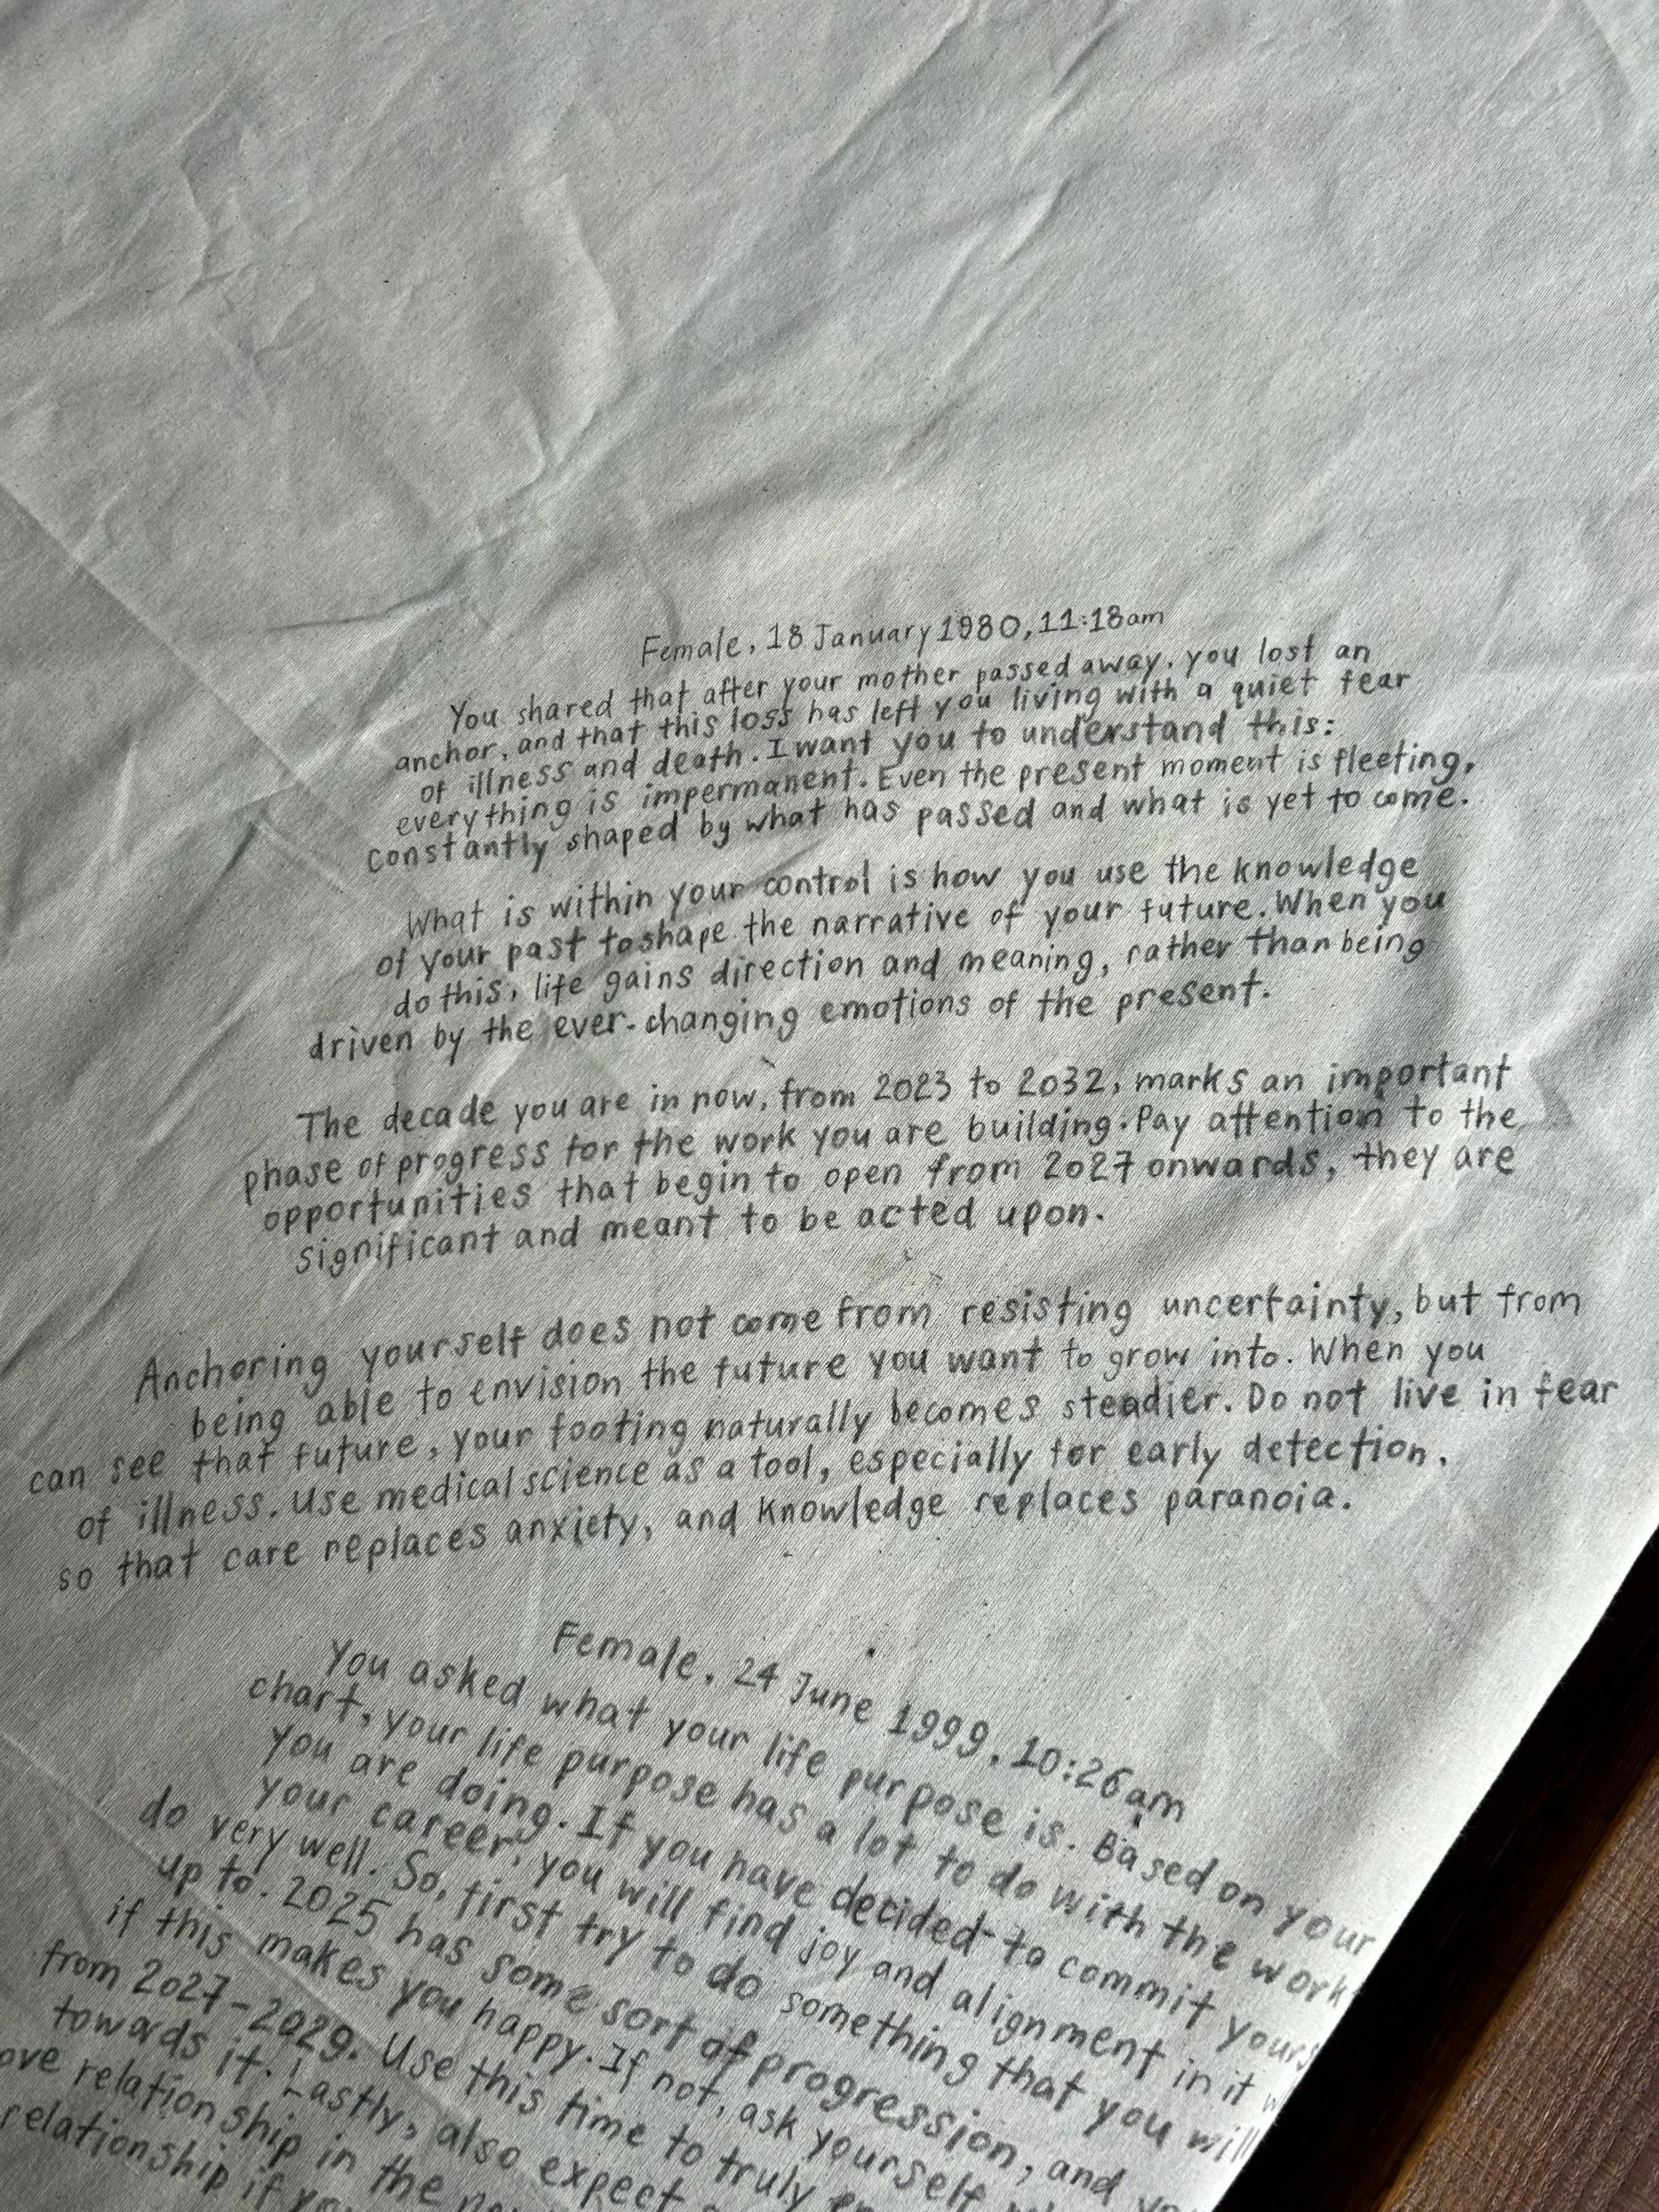 Female, 18 January 1980, 11:18am
You shared that after your mother passed away, you lost an
anchor, and that this loss has left you living with a quiet fear
of illness and death. I want you to understand this:
everything is impermanent. Even the present moment is fleeting,
constantly shaped by what has passed and what is yet to come.
What is within your control is how you use the knowledge
of your past to shape the narrative of your future. When you
do this, life gains direction and meaning, rather than being
driven by the ever-changing emotions of the present.
The decade you are in now, from 2023 to 2032, marks an important
phase of progress for the work you are building. Pay attention to the
opportunities that begin to open from 2027 onwards, they are
significant and meant to be acted upon.
Anchoring yourself does not come from resisting uncertainty, but from
being able to envision the future you want to grow into. When you
can see that future, your footing naturally becomes steadier. Do not live in fear
of illness. Use medical science as a tool, especially for early detection,
so that care replaces anxiety, and knowledge replaces paranoia.
Female, 24 June 1999, 10:26am
You asked what your life purpose is. Based on your
chart, your life purpose has a lot to do with the work
you are doing. If you have decided to commit yours
your career, you will find joy and alignment in it w
do very well. So, first try to do something that you will
up to. 2025 has some sort of progression, and
if this makes you happy. If not, ask yourself
from 2027-2029. Use this time to truly
towards it. Lastly, also expect
ove relationship in the
relationship if